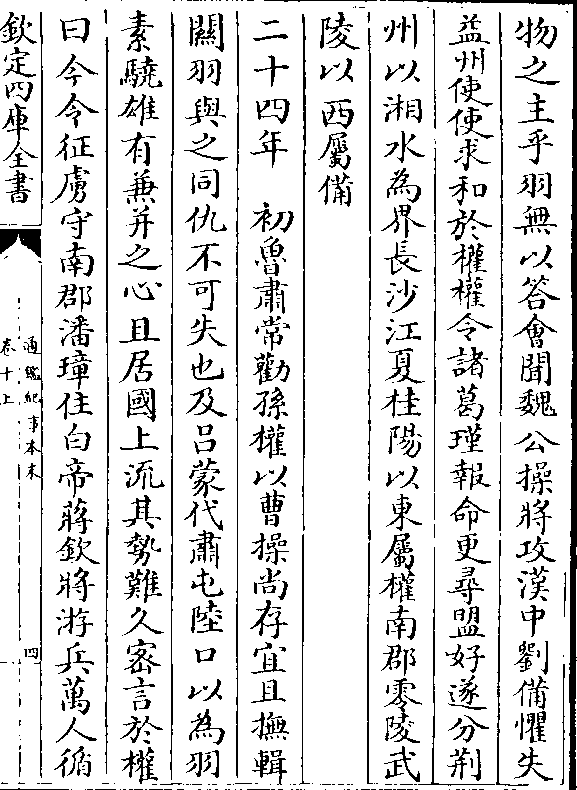 物之主乎羽無以答會聞魏公操將攻漢中劉備懼失
益州使使求和於權權令諸葛瑾報命更尋盟好遂分荆
州以湘水為界長沙江夏桂陽以東屬權南郡零陵武
陵以西屬備
二十四年　初魯肅常勸孫權以曹操尚存宜且撫輯
關羽與之同仇不可失也及吕蒙代肅屯陸口以為羽
素驍雄有兼并之心且居國上流其勢難久密言於權
曰今令征虜守南郡潘璋住白帝蔣欽將游兵萬人循
欽定四庫全書
通鑑紀事本末
卷十上
四